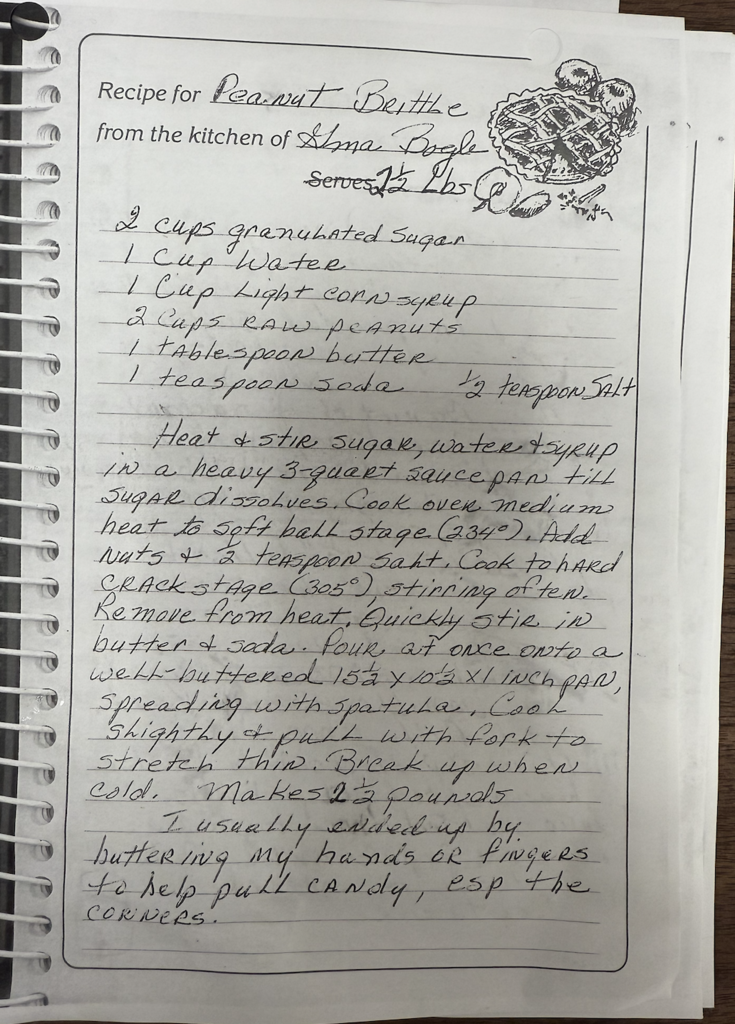 Recipe for Peanut Brittle
from the kitchen of Alma Bogle
Serves 2½ Lbs
2 cups granulated Sugar
1 Cup Water
1 Cup Light corn syrup
2 Cups RAW peanuts
1 tablespoon butter
1 teaspoon soda ½ teaspoon Salt
Heat & stir sugar, water & syrup
in a heavy 3-quart saucepan till
sugar dissolves. Cook over medium
heat to soft ball stage (234°). Add
nuts & ½ teaspoon salt. Cook to hard
crack stage (305°), stirring often.
Remove from heat. Quickly stir in
butter & soda. Pour at once onto a
well-buttered 15½ x 10½ x 1 inch pan,
spreading with spatula. Cool
slightly & pull with fork to
stretch thin. Break up when
cold. Makes 2½ pounds
I usually ended up by
buttering my hands or fingers
to help pull candy, esp the
corners.